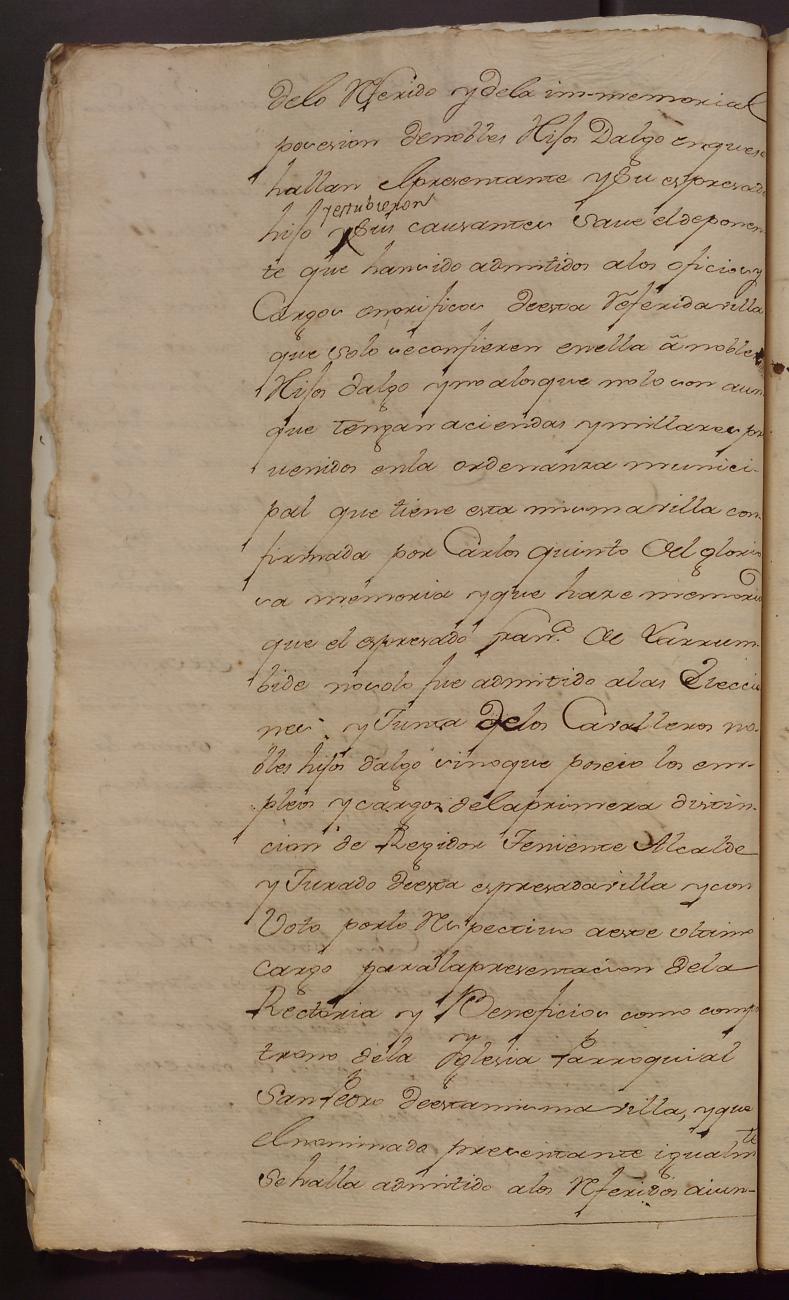 delo Referido y dela im-memorial
posesion denobles Hijos Dalgo enquese
hallan Elpresentante y Su espresado
yestubieron
hijo y Sus causantes Save eldeponen
te que hansido admitidos alos oficios y
Cargos onorificos deesta Referida villa
que solo seconfieren enella â nobles
Hijos dalgo y no alosque nolo son aun
que tengan aciendas y millares pre
venidos enla ordenanza munici-
pal que tiene esta misma villa con
firmada por Carlos quinto de glorio
sa memoria y que haze memoria
que el espresado Fran.co de Larrum
bide nosolo fue admitido alas Eleccio
nes y Junta delos Cavalleros no-
bles hijos dalgo sinoque poseio los em-
pleos y cargos delaprimera distin-
cion de Regidor Teniente Alcalde
y Jurado deesta espresada villa y con
Voto porlo Respectivo aeste ultimo
cargo para lapresentacion dela
Rectoria y Beneficios como comp
trono dela Yglesia Parroquial
San Pedro deestamisma villa, y que
elnominado presentante igualmte
Se halla admitido alos Referidos aiun-